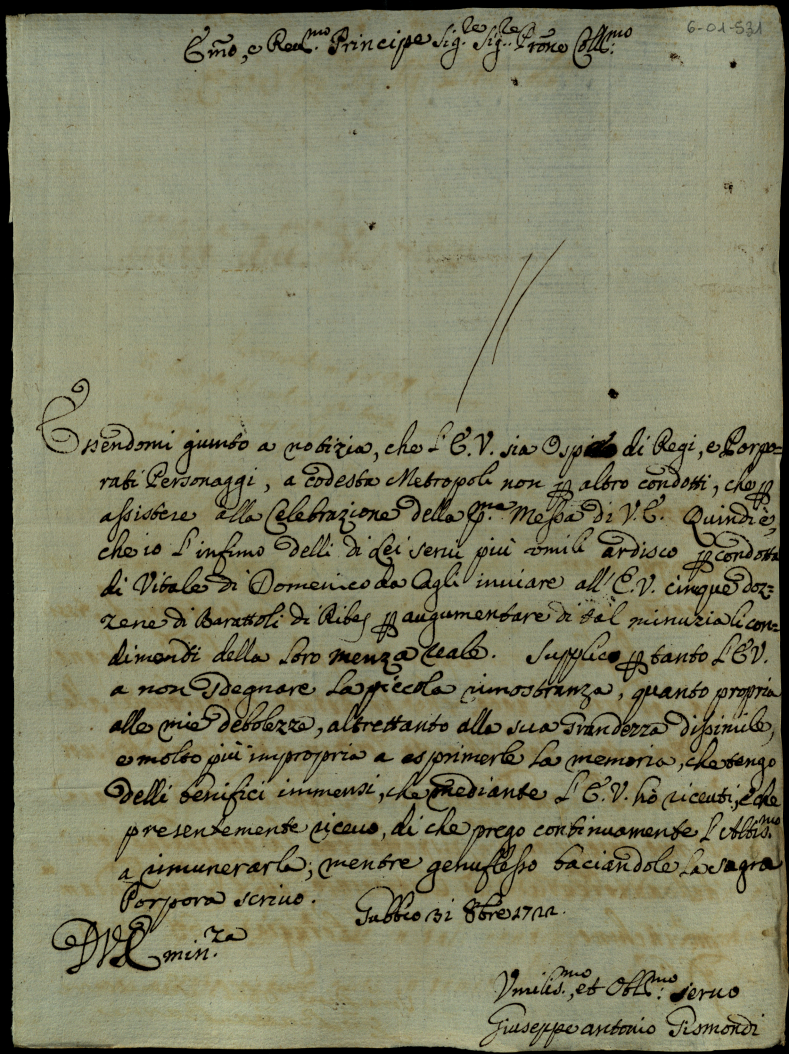 6-01-531
Em̃o, e Reu.mo Principe Sig.re Sig.re Prõne Coll.mo
Essendomi giunto a notizia, che l'E.V. sia Ospite di Regi, e Porpo=
rati Personaggi, a codesta Metropoli non p altro condotti, che p
assistere alla Celebrazione della p.ma Messa di V.E. Quindi è,
che io l'infimo delli di Lei serui più vmili ardisco p condotta
di Vitale di Domenico da Cagli inuiare all'E.V. cinque doz=
zene di Barattoli di Ribes p augumentare di tal minuzia li con=
dimenti della loro menza reale. Supplico p tanto l'E.V.
a non isdegnare la piccola rimostranza, quanto propria
alle mie debolezze, altrettanto alla sua Grandezza dissimile,
e molto più impropria a esprimerle la memoria, che tengo
delli benifici immensi, che mediante l'E.V. hò riceuti, e che
presentemente riceuo, di che prego continuamente l'Altis.mo
a rimunerarla; mentre genuflesso baciandole la sagra
Porpora scriuo.
Gubbio 31 8bre 1722.
D V Emin.za
Vmilis.mo, et Obl.mo seruo
Giuseppe antonio Gismondi